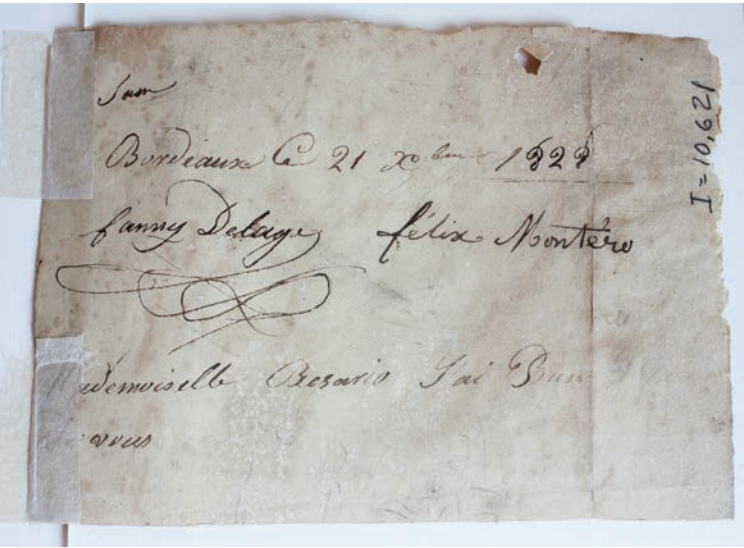 Bordeaux Ce 21 Xbre 1828
fanny Delage félix Montéro
Mademoiselle Rosario J'ai
vous
I=10,621